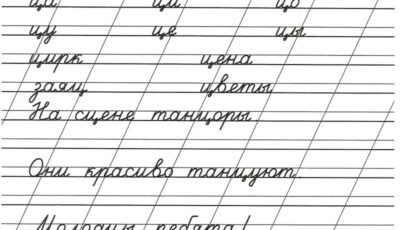 ца ци цо
цу це цы
цирк цена
заяц цветы
На сцене танцоры.
Они красиво танцуют.
Молодцы, ребята!